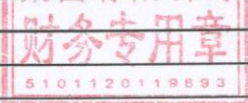 财务专用章
5101120119893